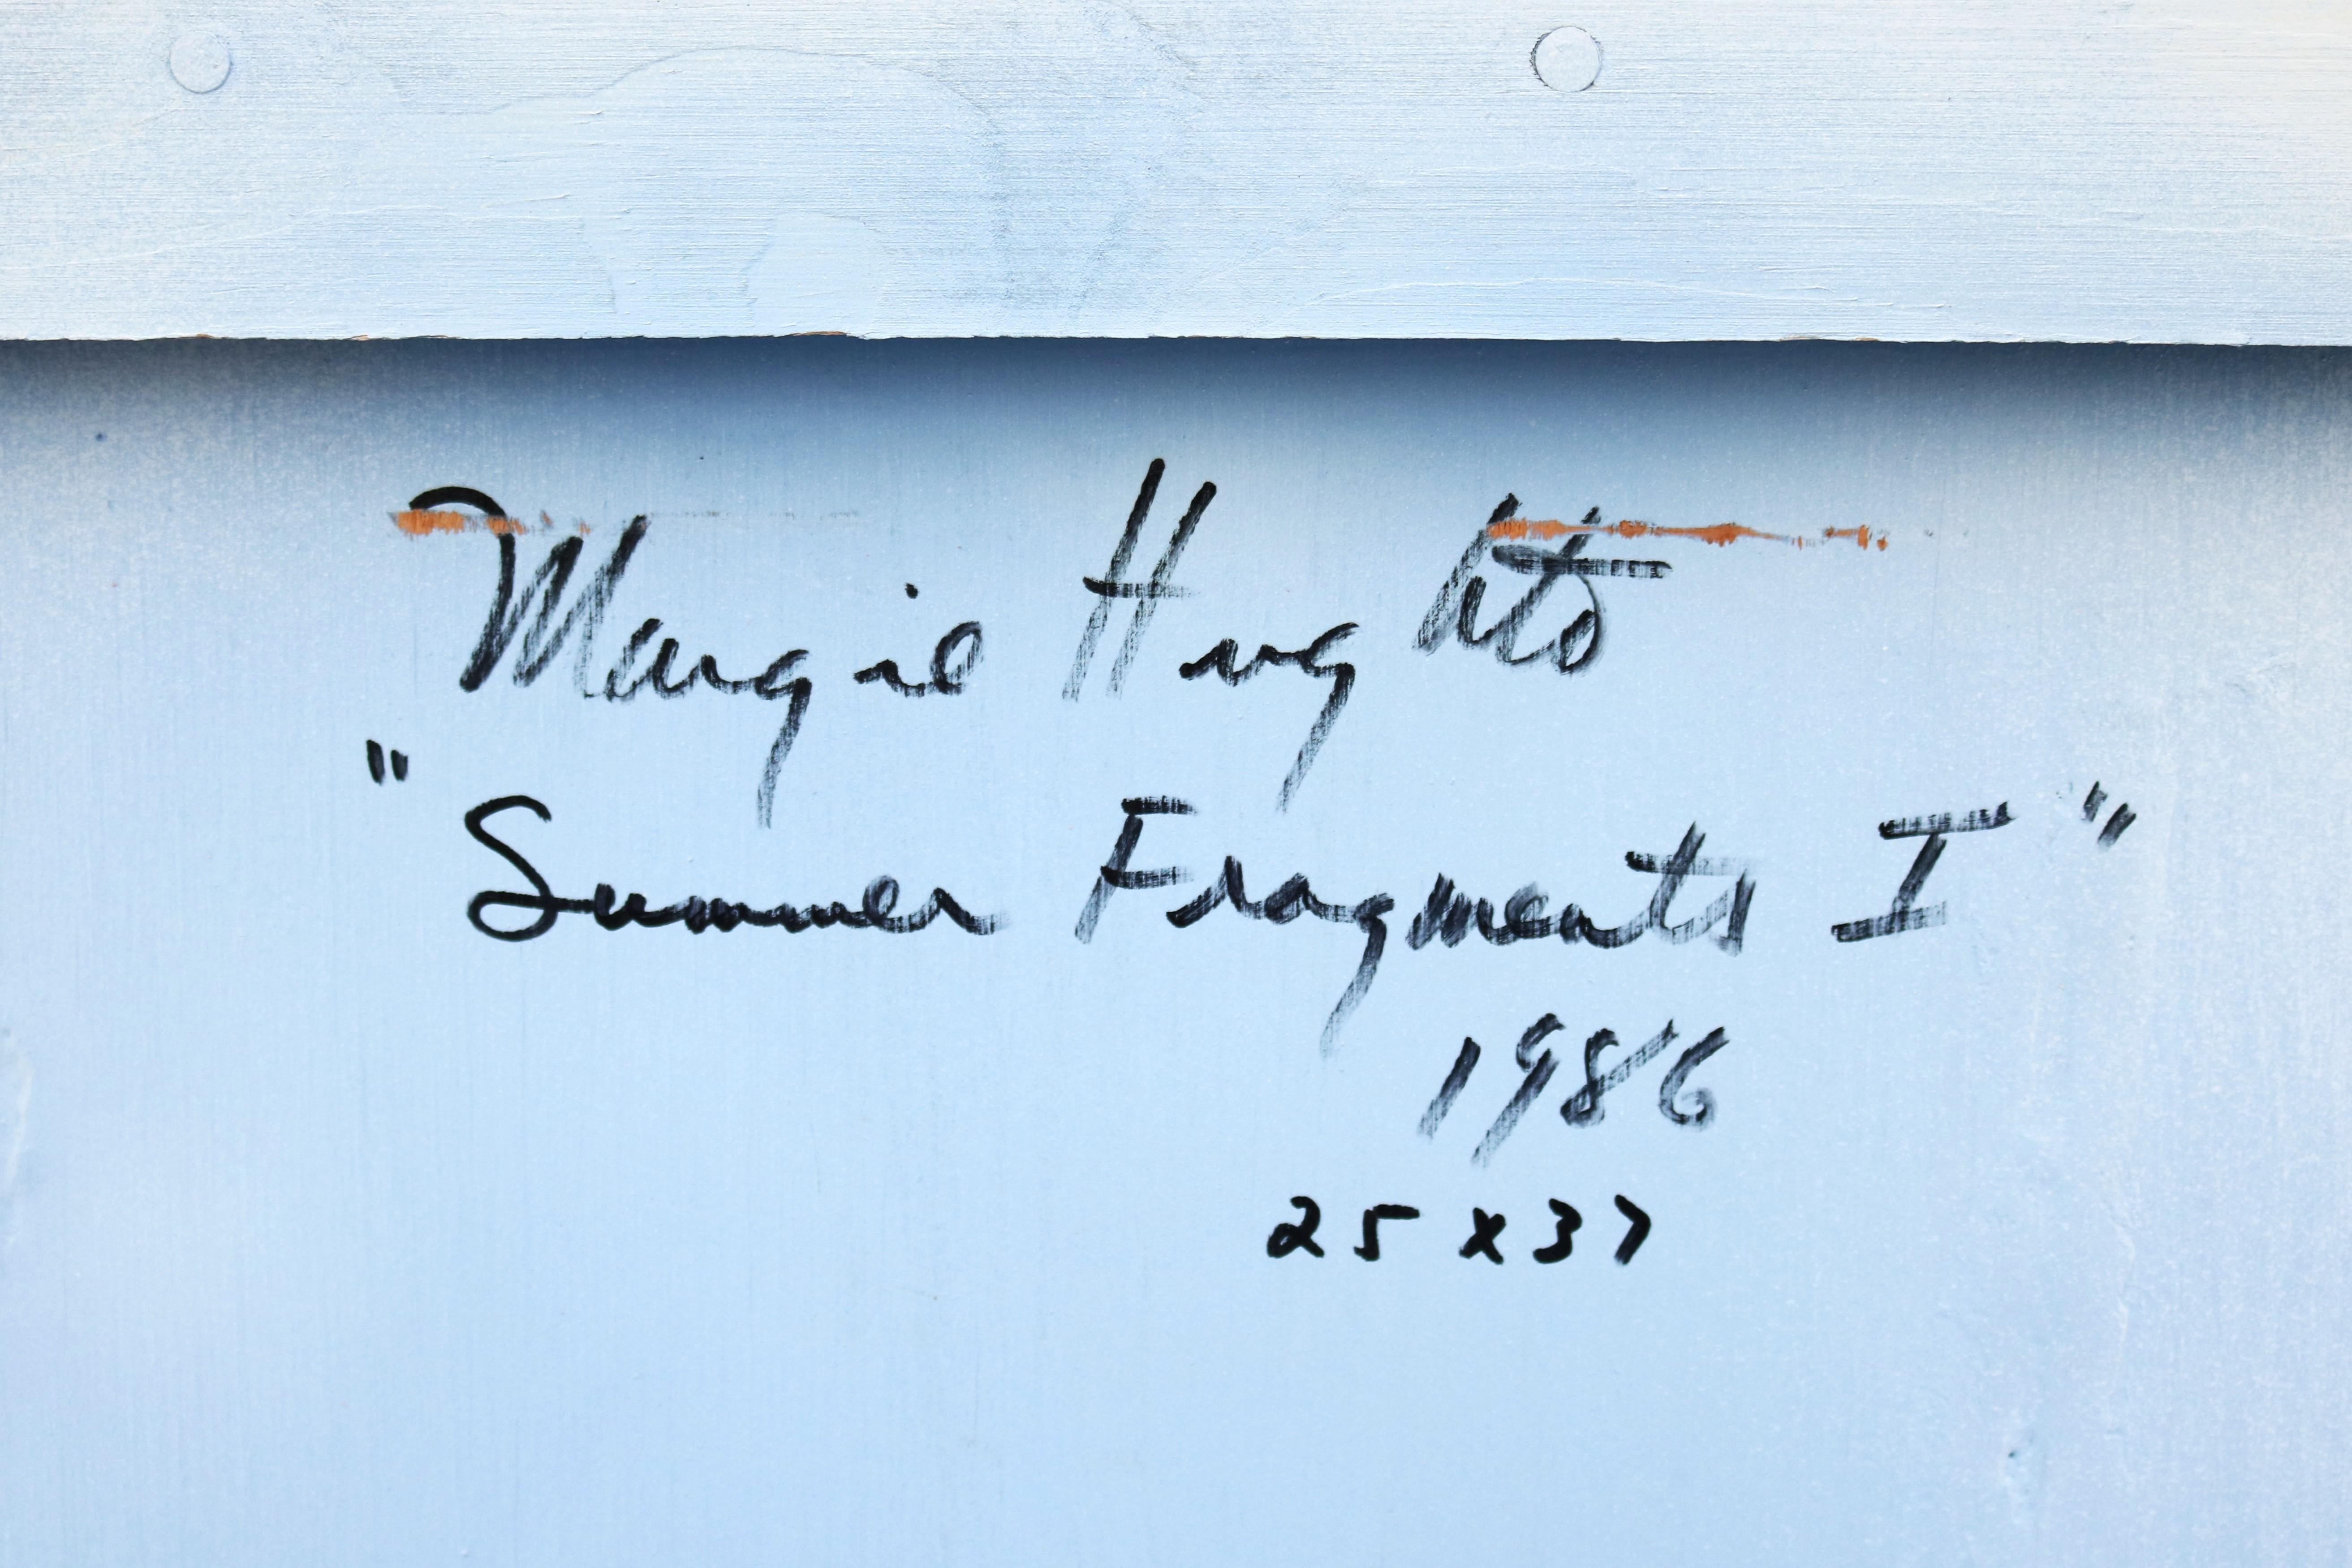 Margie Hughto
"Summer Fragments I"
1986
25 x 37